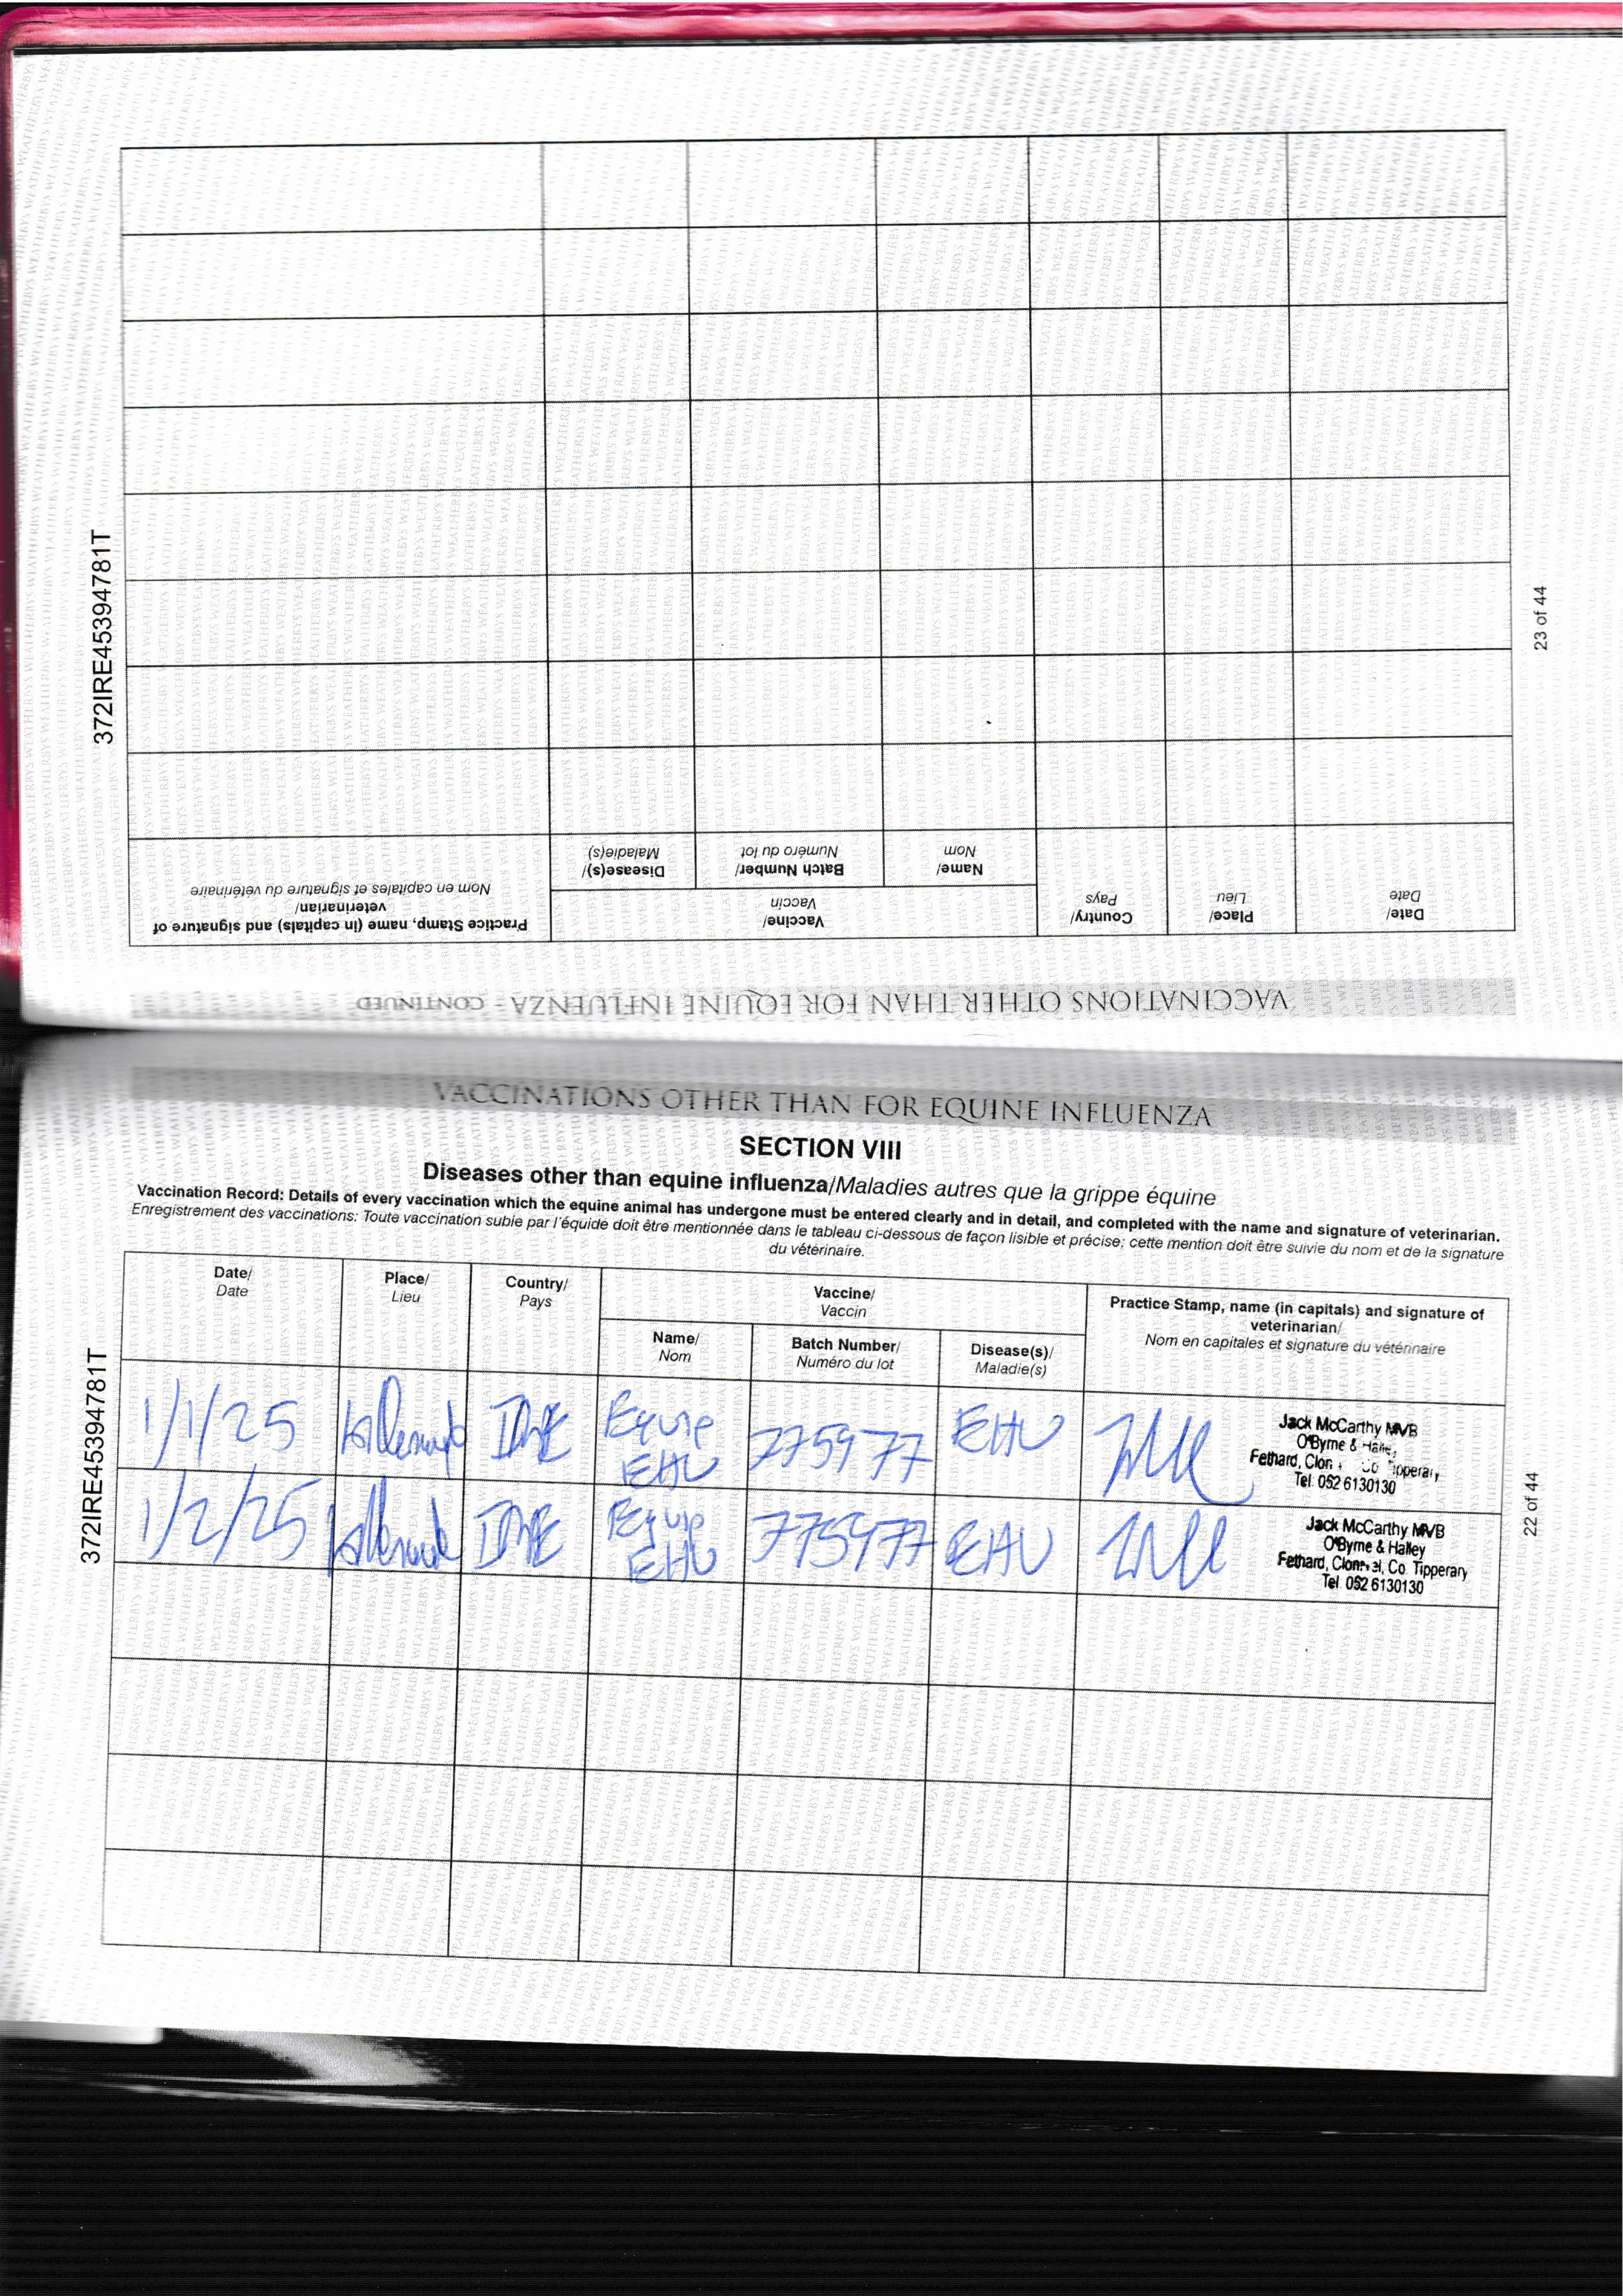 372IRE45394781T
23 of 44
VACCINATIONS OTHER THAN FOR EQUINE INFLUENZA - CONTINUED
Date/
Date
Place/
Lieu
Country/
Pays
Vaccine/
Vaccin
Name/
Nom
Batch Number/
Numéro du lot
Disease(s)/
Maladie(s)
Practice Stamp, name (in capitals) and signature of
veterinarian/
Nom en capitales et signature du vétérinaire
VACCINATIONS OTHER THAN FOR EQUINE INFLUENZA
SECTION VIII
Diseases other than equine influenza/Maladies autres que la grippe équine
Vaccination Record: Details of every vaccination which the equine animal has undergone must be entered clearly and in detail, and completed with the name and signature of veterinarian.
Enregistrement des vaccinations: Toute vaccination subie par l'équidé doit être mentionnée dans le tableau ci-dessous de façon lisible et précise; cette mention doit être suivie du nom et de la signature
du vétérinaire.
Date/
Date
Place/
Lieu
Country/
Pays
Vaccine/
Vaccin
Name/
Nom
Batch Number/
Numéro du lot
Disease(s)/
Maladie(s)
Practice Stamp, name (in capitals) and signature of
veterinarian/
Nom en capitales et signature du vétérinaire
1/1/25
Equip
EHV
775977
EHV
Jack McCarthy MVB
O'Byrne & Halley
Fethard, Co Tipperary
Tel: 052 6130130
1/2/25
Equip
EHV
775977
EHV
Jack McCarthy MVB
O'Byrne & Halley
Fethard, Clonmel, Co. Tipperary
Tel. 052 6130130
372IRE45394781T
22 of 44